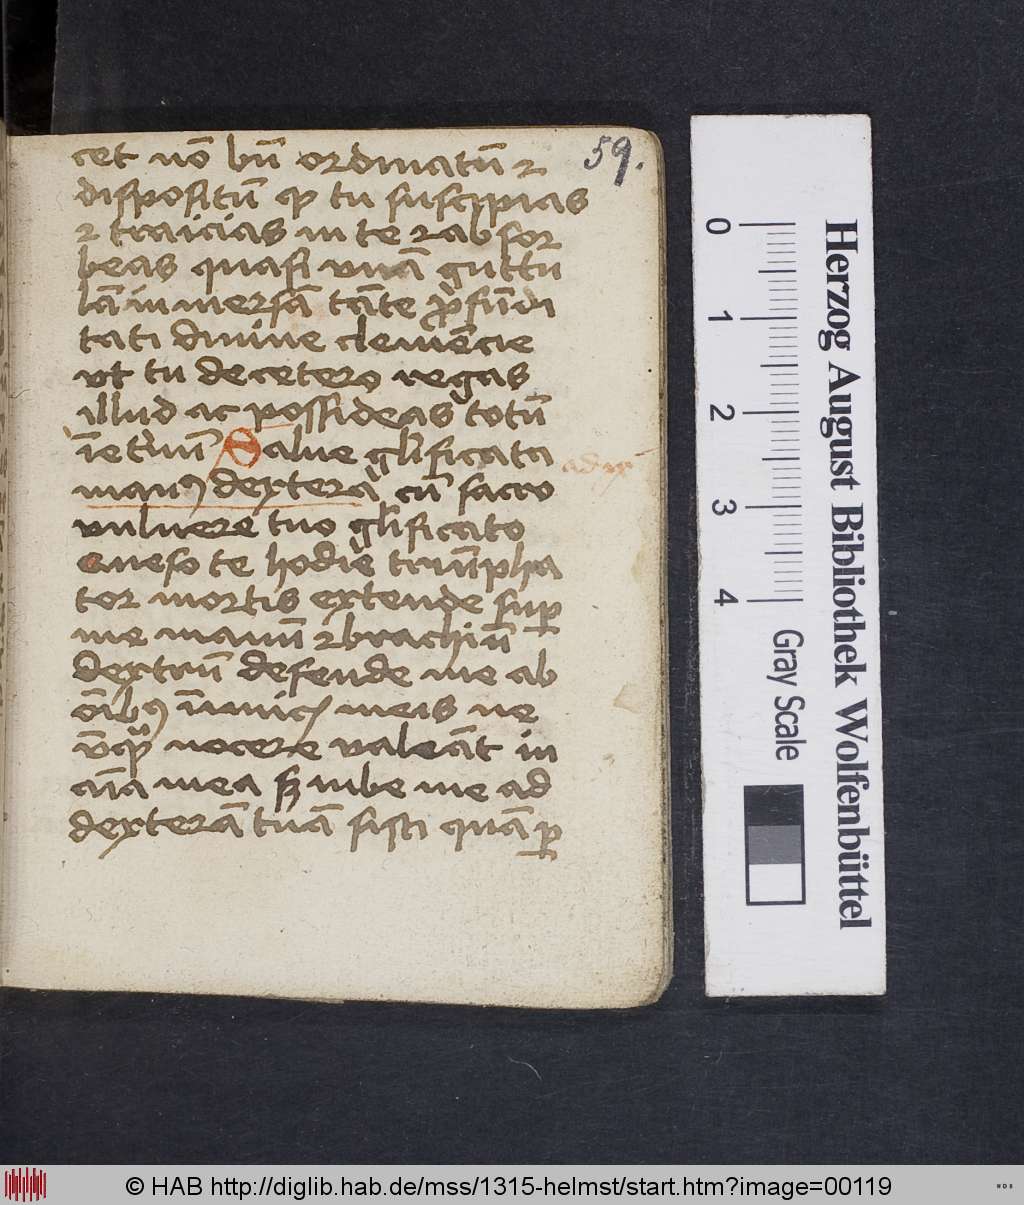 cet nō bn̄ ordinatū ⁊
59.
dispositū qͥ tu suscipias
⁊ traicias in te ⁊ absor
beas quasi vnā guttu
lā in mersā tāte ꝓfūdi
tati diuine clemēcie
vt tu de cetero regas
illud ac possideas totū
īetnū Salue glīficata
ad ex
manꝰ dextera cū sacro
vulnere tuo glīficato
Queso te hodie triūpha
tor mortis extende suꝑ
me manū ⁊ brachiū
dextrū defende me ab
oībꝫ īimicis meis ne
vq̄ nocere valeāt in
aīa mea sꝫ iube me ad
dexterā tuā sisti quā ꝑ
0 1 2 3 4 Gray Scale
Herzog August Bibliothek Wolfenbüttel
© HAB http://diglib.hab.de/mss/1315-helmst/start.htm?image=00119